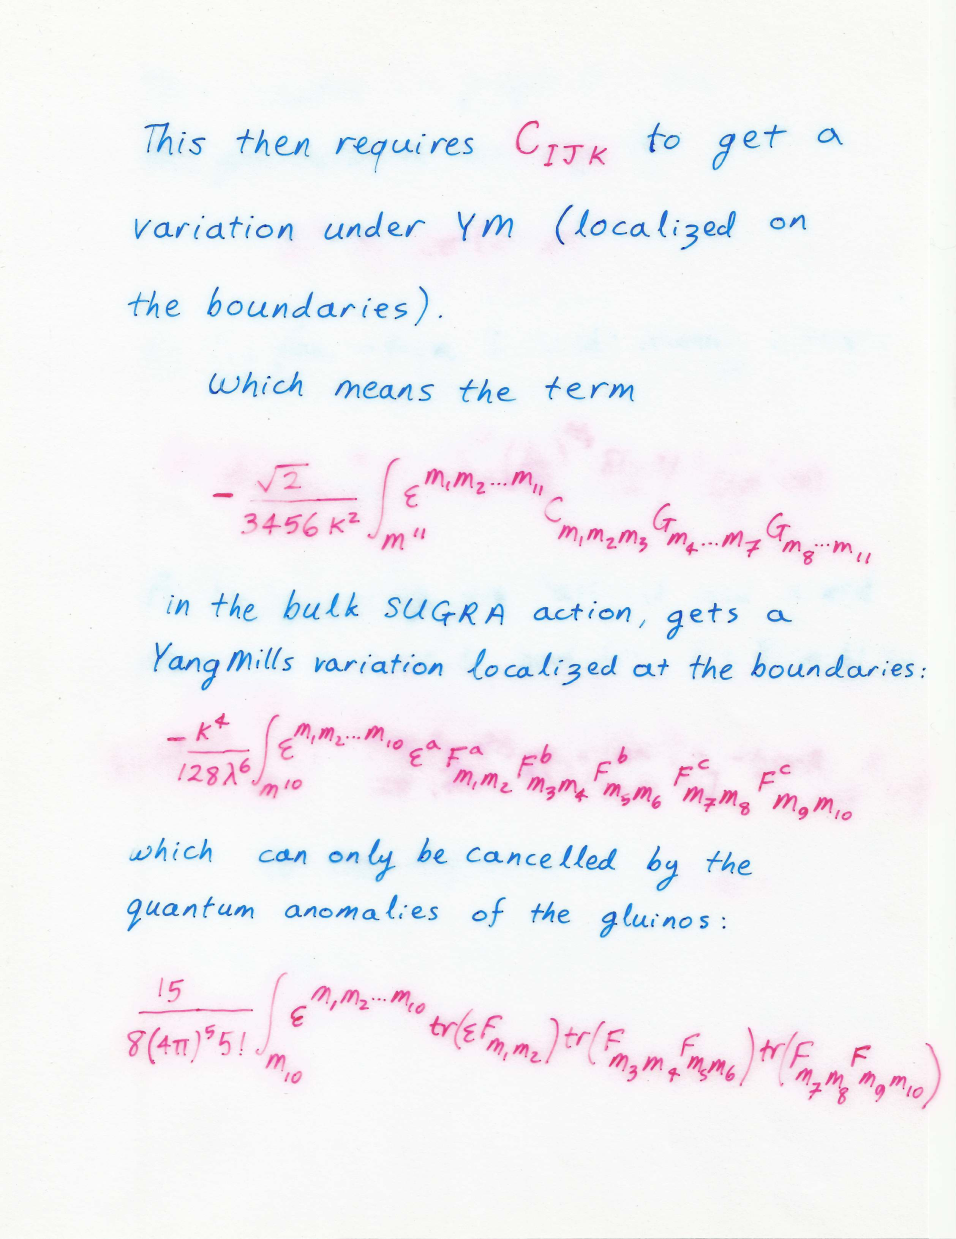 This then requires C_{IJK} to get a
variation under YM (localized on
the boundaries).
Which means the term
- \frac{\sqrt{2}}{3456 K^2} \int_{m^{11}} \varepsilon^{m_1 m_2 ... m_{11}} C_{m_1 m_2 m_3} G_{m_4 ... m_7} G_{m_8 ... m_{11}}
in the bulk SUGRA action, gets a
Yang Mills variation localized at the boundaries:
- \frac{K^4}{128 λ^6} \int_{m^{10}} \varepsilon^{m_1 m_2 ... m_{10}} \varepsilon^a F^a_{m_1 m_2} F^b_{m_3 m_4} F^b_{m_5 m_6} F^c_{m_7 m_8} F^c_{m_9 m_{10}}
which can only be cancelled by the
quantum anomalies of the gluinos:
\frac{15}{8(4π)^5 5!} \int_{m_{10}} \varepsilon^{m_1 m_2 ... m_{10}} tr(\varepsilon F_{m_1 m_2}) tr(F_{m_3 m_4} F_{m_5 m_6}) tr(F_{m_7 m_8} F_{m_9 m_{10}})